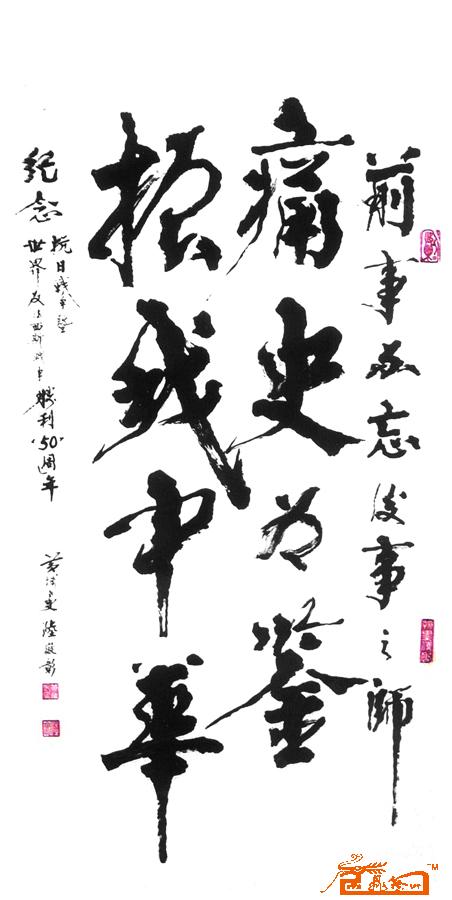 前事不忘后事之师
痛史为鉴
振我中华
纪念
抗日战争暨
世界反法西斯战争胜利“50”周年